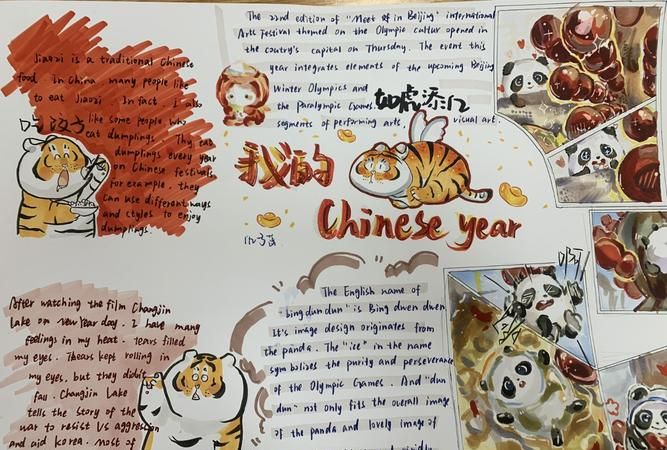 The 22nd edition of "Meet in Beijing" international
Arts Festival themed on the Olympic cultur opened in
the coutry's capital on Thursday. The event this
year integrates elements of the upcoming Beijing
Winter Olympics and
the Paralympic Games.
如虎添亿
segments of performing arts,
visual art.
Jiaozi is a traditional Chinese
food. In China many people like
to eat Jiaozi. In fact I also
like some people who
eat dumplings. Thy eat
dumplings every year
on Chinese festivals
for example. they
can use different ways
and styles to enjoy
dumplings.
我的
Chinese year
After watching the film Changjin
Lake on new Year day. I have many
feelings in my heat. Tears filled
my eyes. Thears kept rolling in
my eyes. but they didn't
fall. Changjin Lake
tells the story of the
war to resist Us aggression
and aid Korea. most of
The English name of
"bing dun dun" is Bing dwen dwen
It's image design originates from
the panda. The "ice" in the name
symbolises the purity and perseverance
of the Olympic Games. And "dun
dun" not only fits the overall image
of the panda and lovely image of
啊